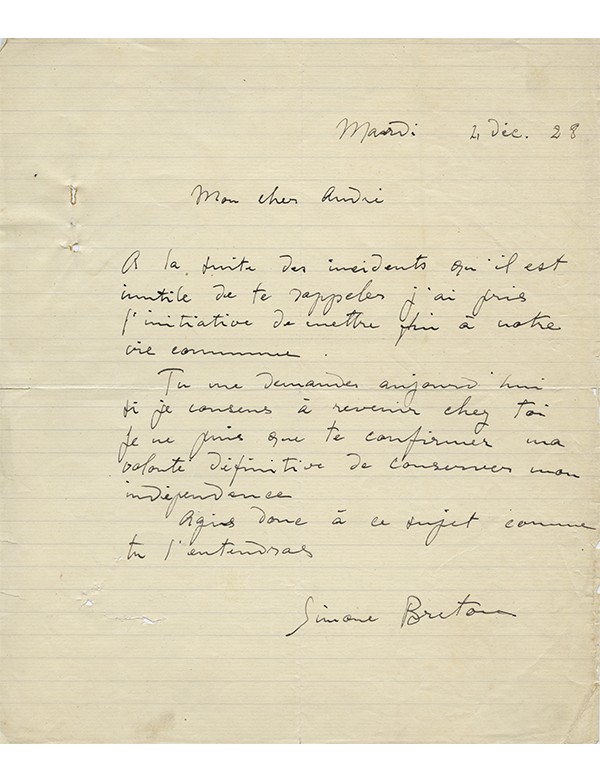 Mardi 4 déc. 28
Mon cher André
A la suite des incidents qu'il est
inutile de te rappeler j'ai pris
l'initiative de mettre fin à notre
vie commune.
Tu me demandes aujourd'hui
si je consens à revenir chez toi
Je ne puis que te confirmer ma
volonté définitive de conserver mon
indépendence
Agis donc à ce sujet comme
tu l'entendras
Simone Breton